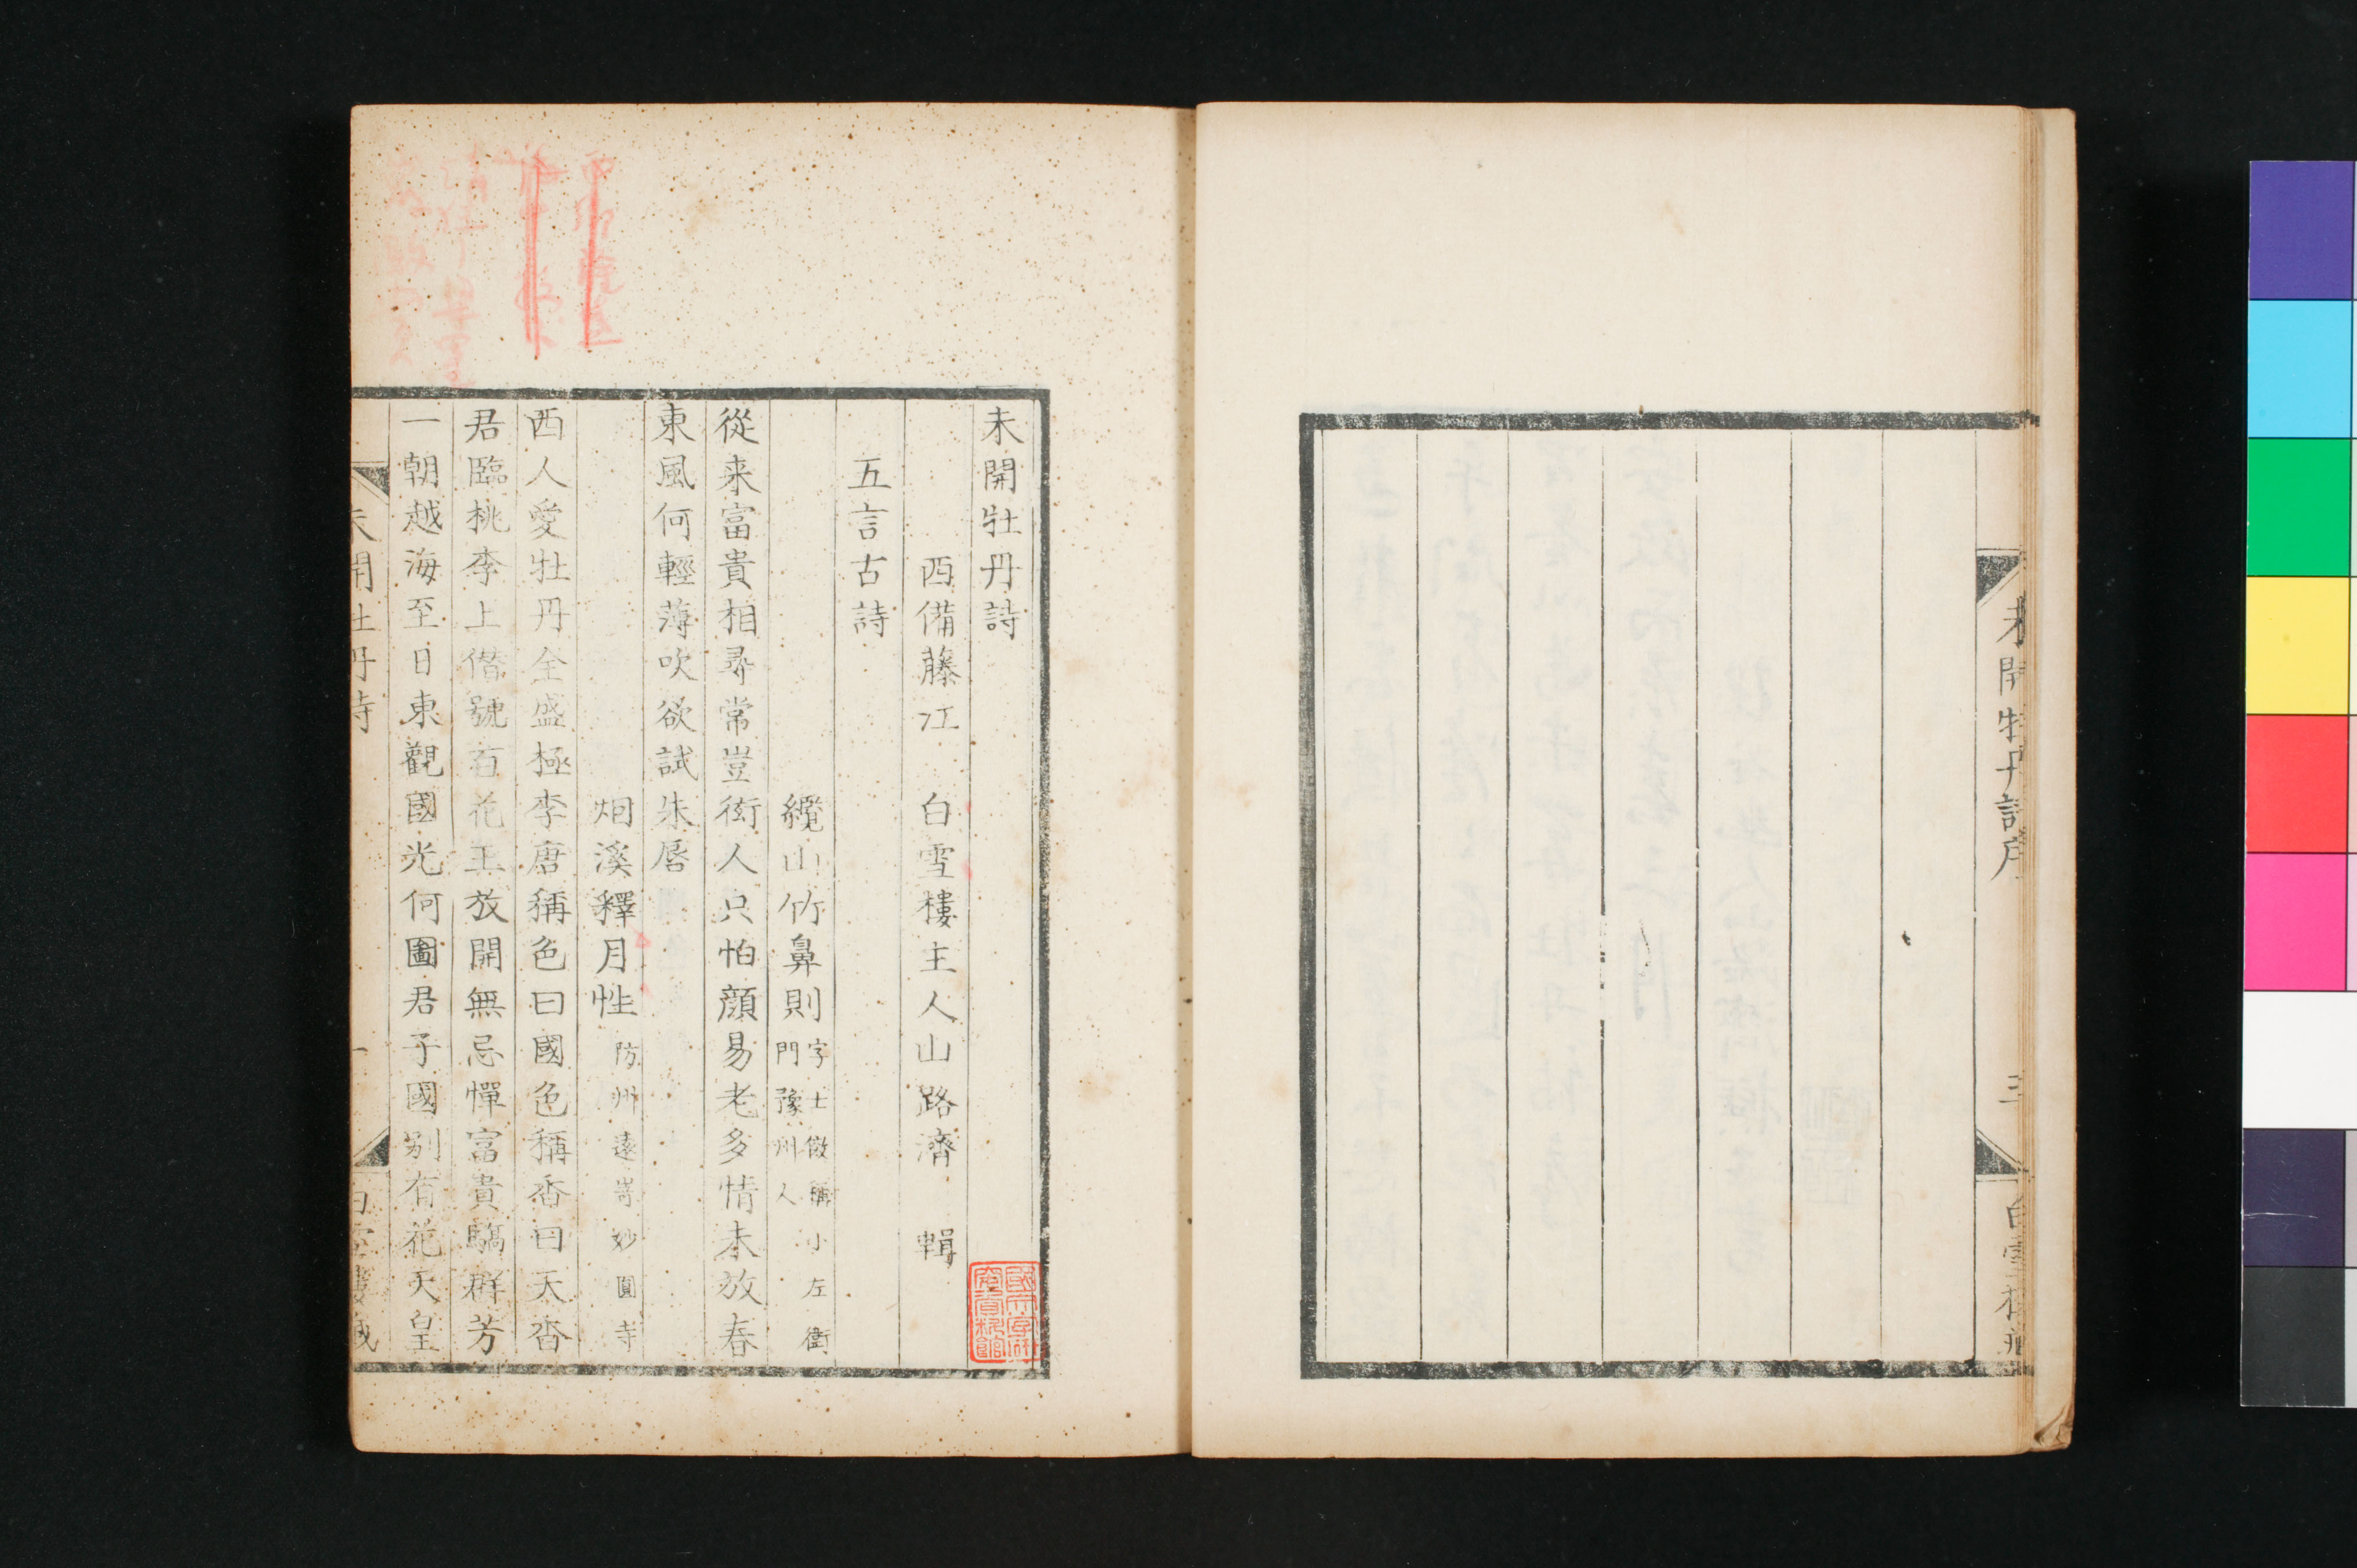 未開牡丹詩序
三
白雪樓藏
未開牡丹詩
西備藤江　白雪樓主人山路濟　輯
五言古詩
纜山竹鼻則字士徵稱小左衛
門豫州人
從来富貴相尋常豈衒人只怕顔易老多情未放春
東風何輕薄吹欲試朱唇
烟溪釋月性防州遠嵜妙圓寺
西人愛牡丹全盛極李唐稱色曰國色稱香曰天香
君臨桃李上僭號百花王放開無忌憚富貴驕群芳
一朝越海至日東觀國光何圖君子國别有花天皇
未開牡丹詩
一
白雪樓藏